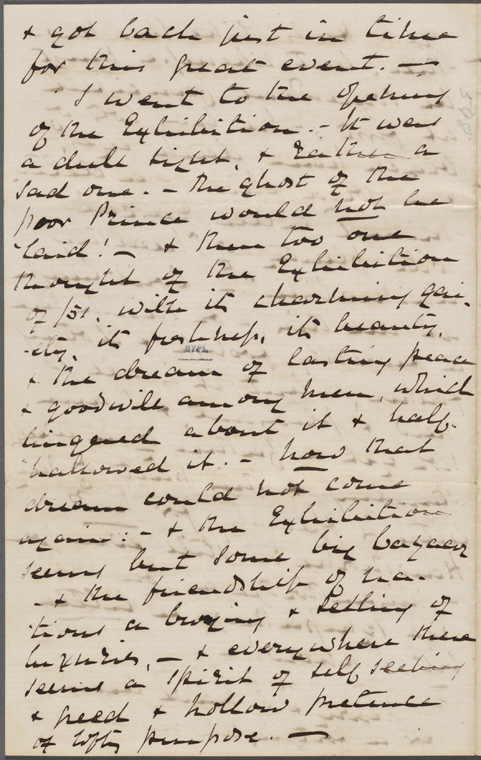 & got back just in time
for this great event. —
I went to the opening
of the Exhibition. — It was
a dull sight, & rather a
sad one. — the ghost of the
poor Prince would not be
'laid'! — & then too one
thought of the Exhibition
of /51. with its charming gai-
-ety, its freshness, its beauty,
& the dream of lasting peace
& goodwill among men, which
lingered about it & half-
hallowed it. — now that
dream could not come
again: — & the Exhibition
seems but some big bazaar
— & the friendship of na-
tions a buying & selling of
luxuries, — & everywhere there
seems a spirit of self seeking
& greed & hollow pretence
of lofty purpose. —